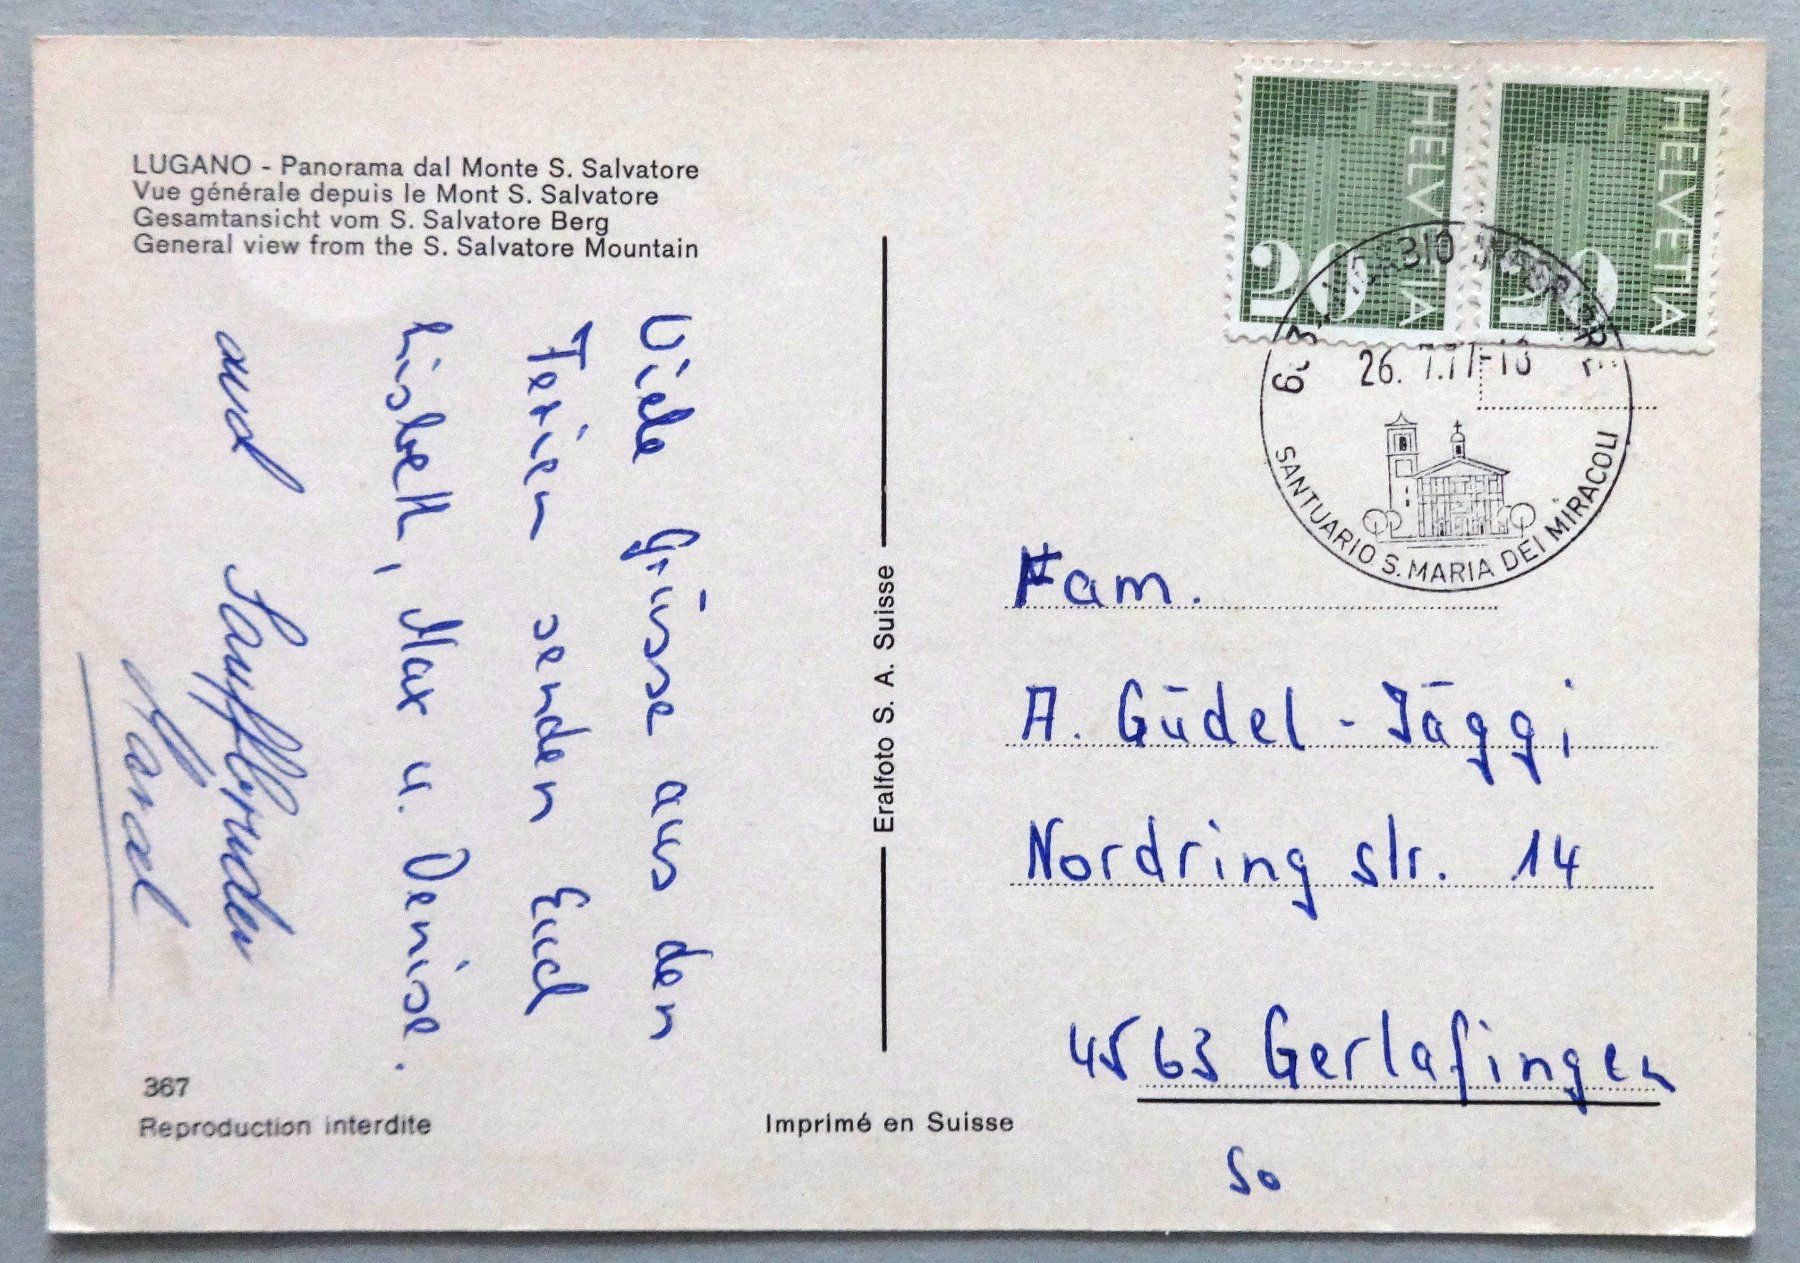 LUGANO - Panorama dal Monte S. Salvatore
Vue générale depuis le Mont S. Salvatore
Gesamtansicht vom S. Salvatore Berg
General view from the S. Salvatore Mountain
Viele Grüsse aus den
Ferien senden Euch
Lisbeth, Max u. Denise.
und
Hansel
367
Reproduction interdite
Eralfoto S. A. Suisse
Imprimé en Suisse
HELVETIA
20
HELVETIA
20
MORBIO INFERIORE
26. 7.77-18
SANTUARIO S. MARIA DEI MIRACOLI
Fam.
A. Güdel - Jäggi
Nordring str. 14
4563 Gerlafingen
So